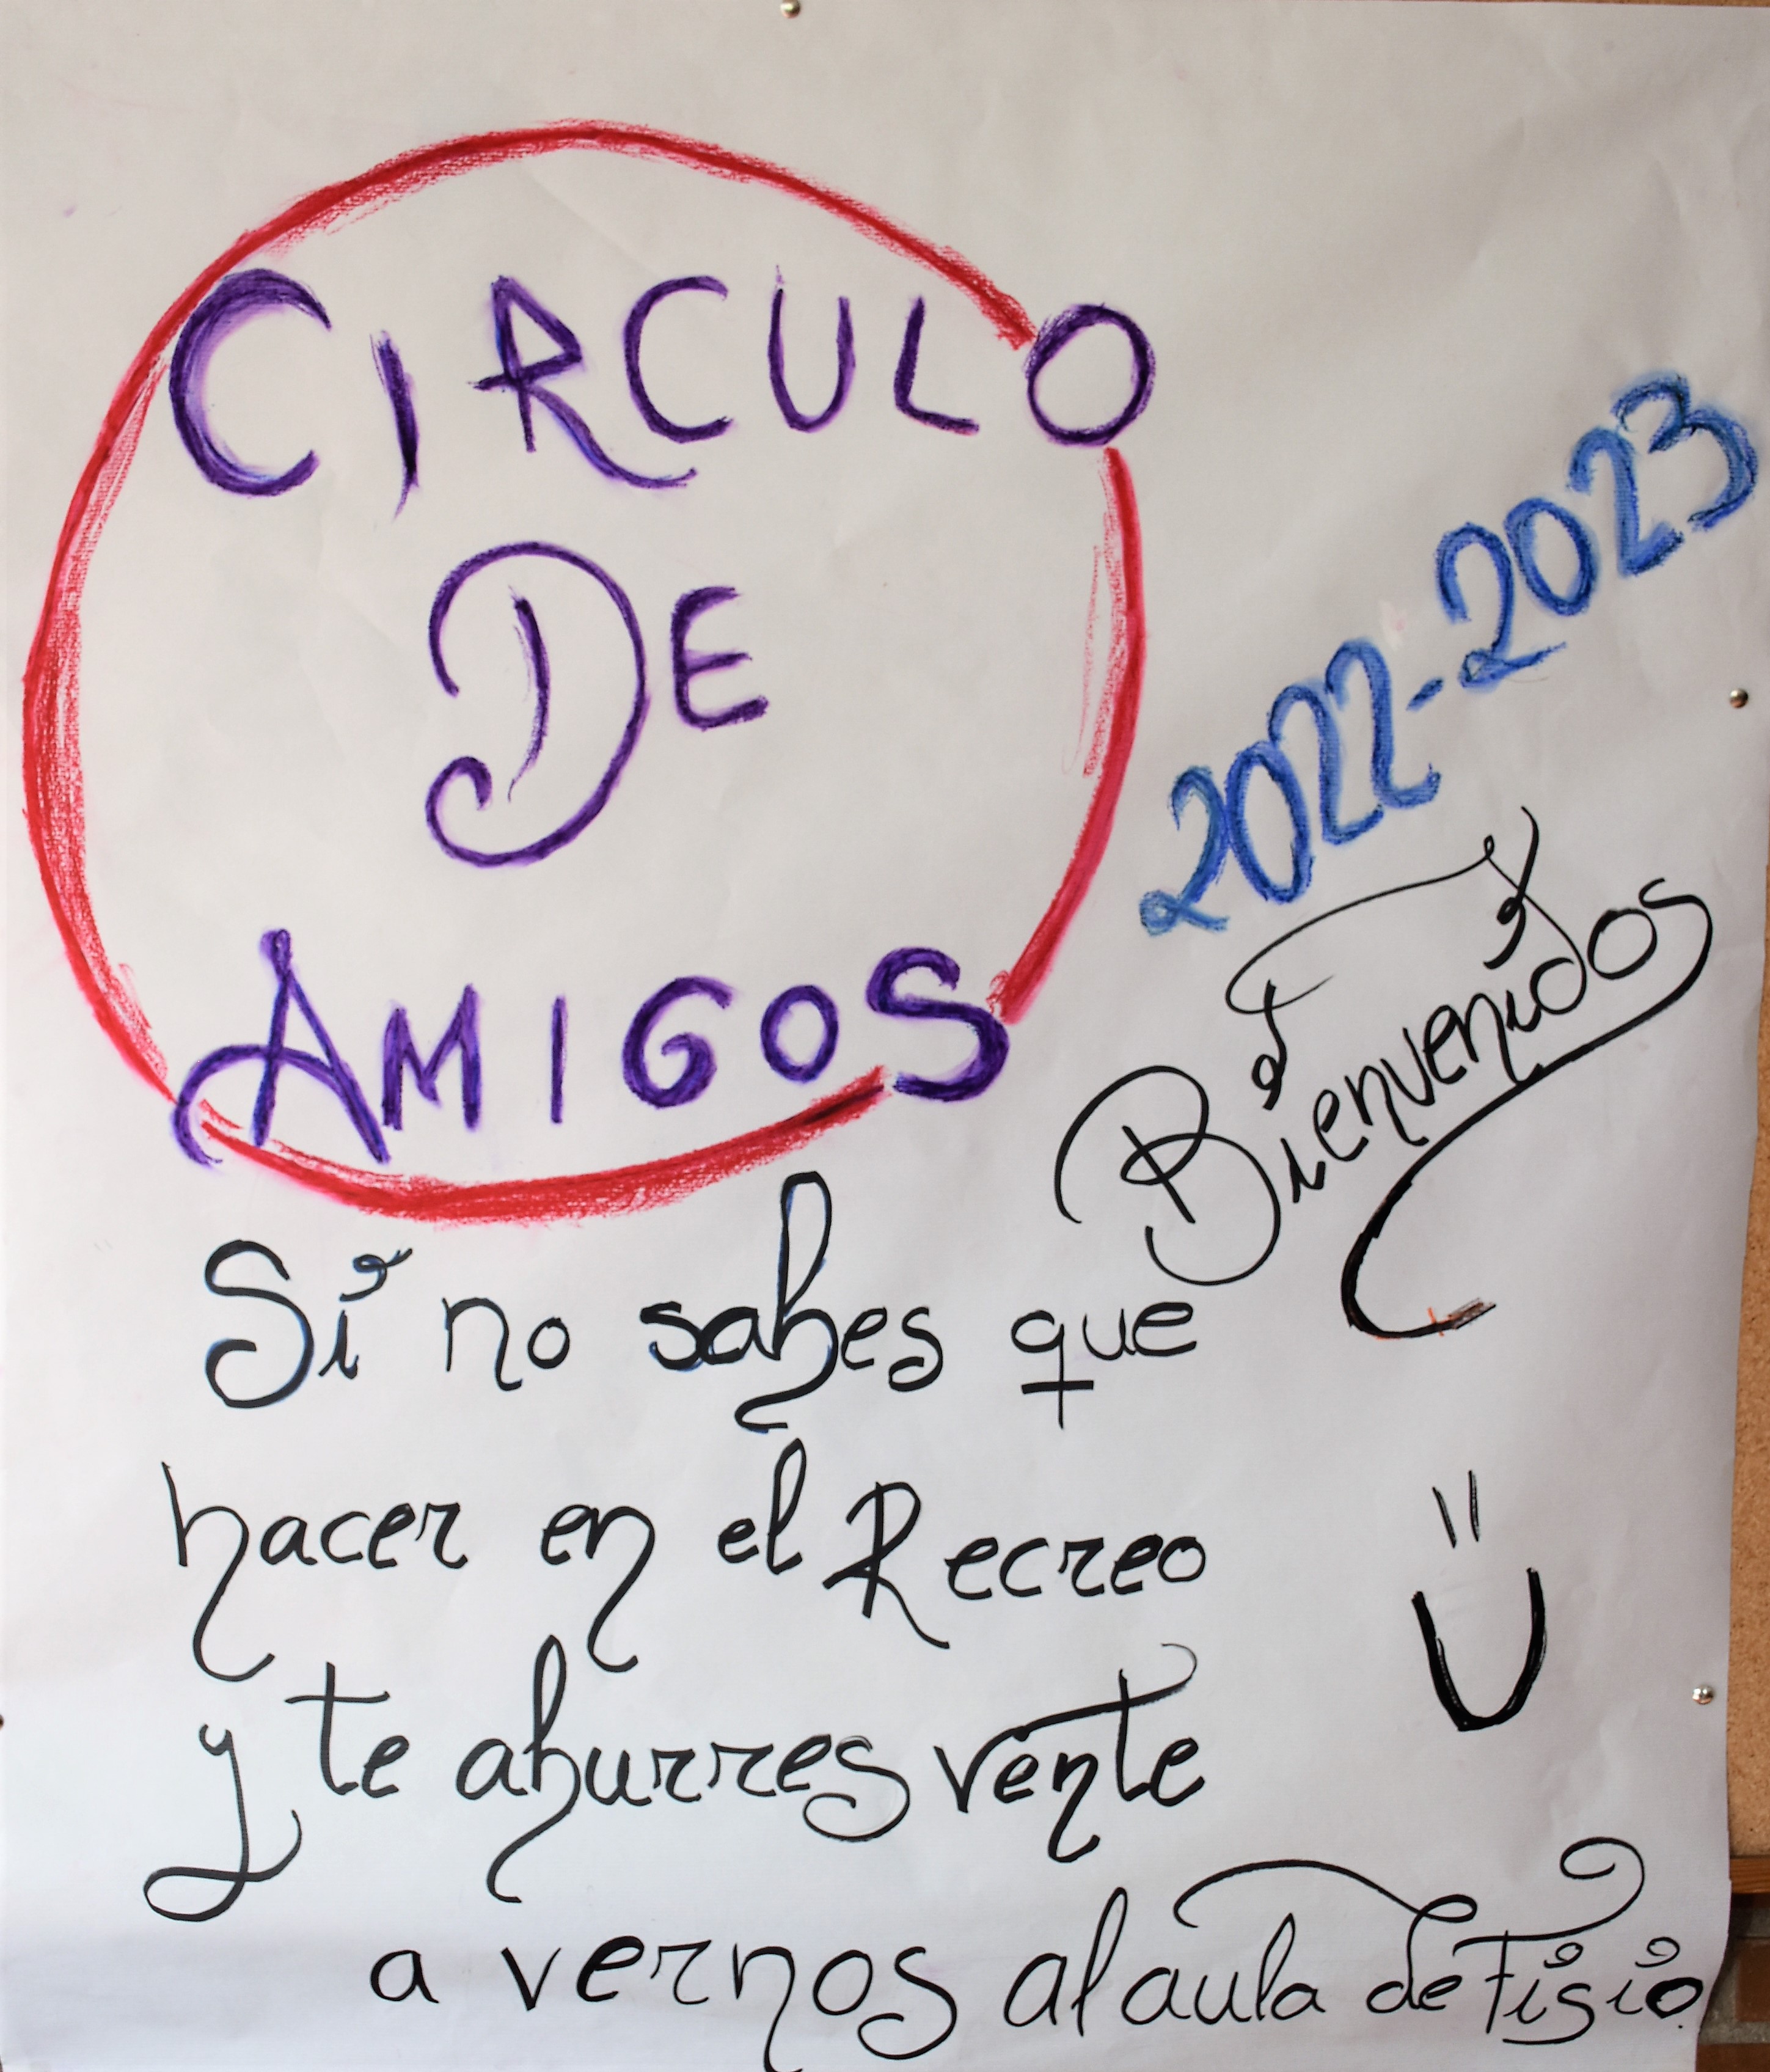 CIRCULO
DE
AMIGOS
2022-2023
Bienvenidos
Si no sabes que
hacer en el Recreo
y te aburres vente
a vernos al aula de Fisio.